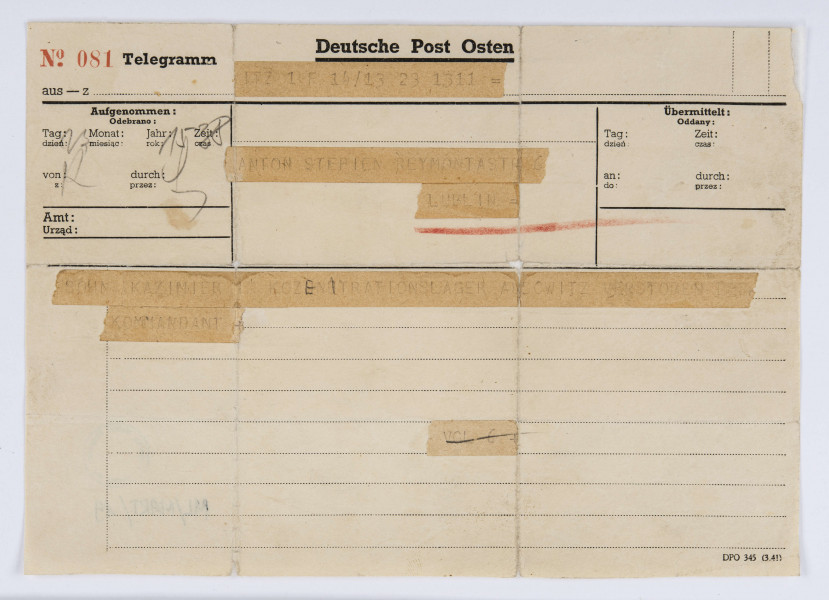 Nº 081 Telegramm
Deutsche Post Osten
14/13 23 1311 =
aus — z
Aufgenommen:
Odebrano:
Tag: Monat: Jahr: Zeit:
dzień: miesiąc: rok: czas:
15 38
von: durch:
z: przez:
Amt:
Urząd:
Übermittelt:
Oddany:
Tag: Zeit:
dzień: czas:
an: durch:
do: przez:
ANTON STEPIEN
LUBLIN =
SOHN KAZIMIER E I
KOMMANDANT +
VOL 6 +
DPO 345 (3.41)